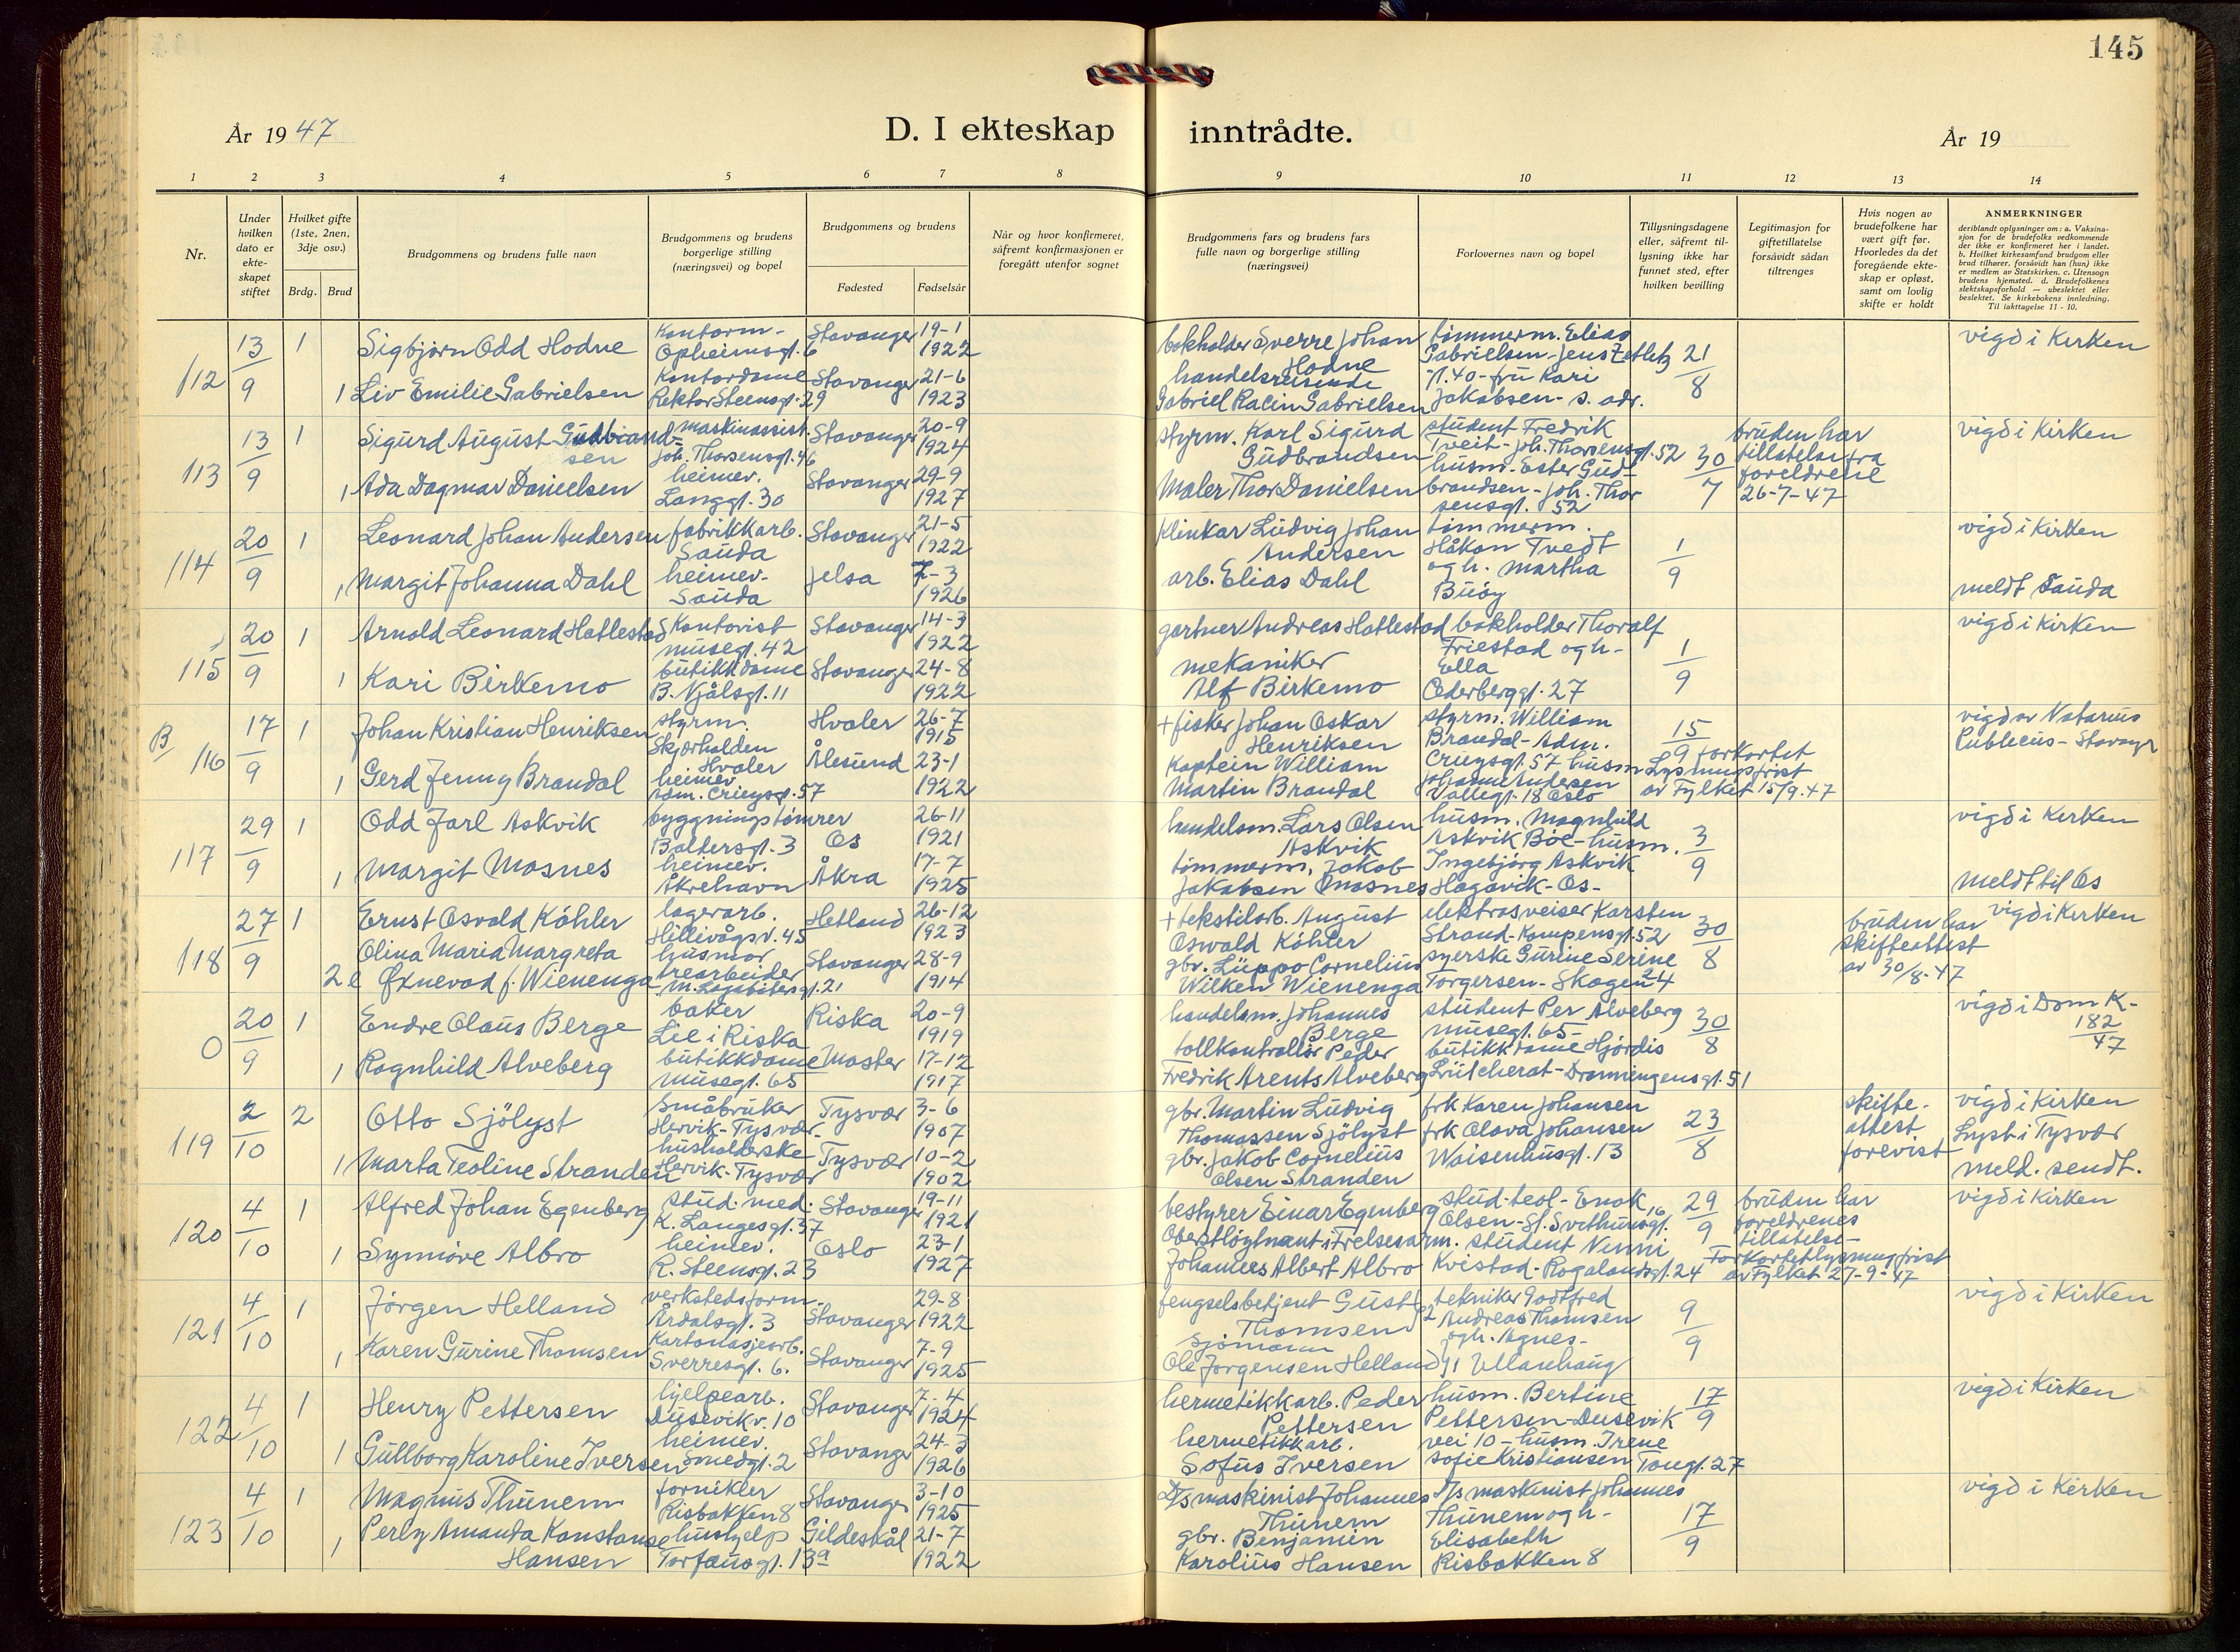 145
År 1947
D. I ekteskap inntrådte.
År 19
1 2 3 4 5 6 7 8 9 10 11 12 13 14
Nr.
Under hvilken dato er ekte-skapet stiftet
Hvilket gifte (1ste, 2nen, 3dje osv.)
Brdg. Brud
Brudgommens og brudens fulle navn
Brudgommens og brudens borgerlige stilling (næringsvei) og bopel
Brudgommens og brudens
Fødested Fødselsår
Når og hvor konfirmeret, såfremt konfirmasjonen er foregått utenfor sognet
Brudgommens fars og brudens fars fulle navn og borgerlige stilling (næringsvei)
Forlovernes navn og bopel
Tillysningsdagene eller, såfremt til-lysning ikke har funnet sted, efter hvilken bevilling
Legitimasjon for giftetillatelse forsåvidt sådan tiltrenges
Hvis nogen av brudefolkene har vært gift før. Hvorledes da det foregående ekte-skap er opløst, samt om lovlig skifte er holdt
ANMERKNINGER
deriblandt oplysninger om: a. Vaksina-sjon for de brudefolks vedkommende der ikke er konfirmeret her i landet. b. Hvilket kirkesamfund brudgom eller brud tilhører, forsåvidt han (hun) ikke er medlem av Statskirken. c. Utensogn brudens hjemsted. d. Brudefolkenes slektskapsforhold — ubeslektet eller beslektet. Se kirkebokens innledning. Til iakttagelse 11 - 10.
112 13/9 1 Sigbjørn Odd Hodne Kontorm- Opheimsgt. 6 Stavanger 19-1 1922 bokholder Sverre Johan Hodne tømmerm. Elias Gabrielsen-Jens Zetlitz gt. 40- fru Kari Jakobsen- s. adr. 21/8 vigd i Kirken
1 Liv Emilie Gabrielsen Kontordame Rektor Steensgt. 29 Stavanger 21-6 1923 handelsreisende Gabriel Racin Gabrielsen
113 13/9 1 Sigurd August Gudbrand-sen maskinassist. Joh. Thorsensgt. 46 Stavanger 20-9 1924 styrm. Karl Sigurd Gudbrandsen student Fredrik Tveit- Joh. Thorsensgt. 52 husm- Ester Gud-brandsen- Joh. Thor sensgt. 52 30/7 bruden har tillatelse fra foreldrene 26-7-47 vigd i Kirken
1 Ada Dagmar Danielsen heimev. Langgt. 30 Stavanger 29-9 1927 Maler Thor Danielsen
114 20/9 1 Leonard Johan Andersen fabrikkarb. Sauda Stavanger 21-5 1922 Klinkar Ludvig Johan Andersen tømmerm. Håkon Tvedt og h. Martha Buøy 1/9 vigd i Kirken
1 Margit Johanna Dahl heimev- Sauda Jelsa 7-3 1926 arb. Elias Dahl meldt Sauda
115 20/9 1 Arnold Leonard Hatlestad Kontorist Musegt. 42 Stavanger 14-3 1922 gartner Andreas Hatlestad bokholder Thoralf Friestad og h- Ella Cederberggt. 27 1/9 vigd i Kirken
1 Kari Birkemo butikkdame B. Njålsgt. 11 Stavanger 24-8 1922 mekaniker Alf Birkemo
B/ 116 17/9 1 Johan Kristian Henriksen styrm. Skjærhalden Hvaler Hvaler 26-7 1915 + fisker Johan Oskar Henriksen styrm. William Brandal- Adm. Cruysgt. 57 husm Johanne Andersen Vallegt. 18 Oslo 15/9 forkortet Lysningsfrist av Fylket 15/9.47 vigd av Notarius Publicus- Stavanger
1 Gerd Jenny Brandal heimev adm. Crieysgt. 57 Ålesund 23-1 1922 Kaptein William Martin Brandal
117 29/9 1 Odd Jarl Askvik byggningstømrer Baldersgt. 3 Os 26-11 1921 handelsm. Lars Olsen Askvik husm. Magnhild Askvik Bøe- husm. Ingebjørg Askvik Hagavik- Os- 3/9 vigd i Kirken
1 Margit Mosnes heimev. Åkrehavn Åkra 17-7 1925 tømmerm. Jakob Jakobsen Mosnes meldt til Os
118 27/9 1 Ernst Osvald Köhler lagerarb. Hillevågsv. 45 Hetland 26-12 1923 + tekstilarb. August Oswald Köhler elektrosveiser Karsten Strand-Kampensgt. 52 syerske Gurine Serine Torgersen- Skagen 24 30/8 bruden har skifteattest av 30/8-47 vigd i Kirken
2 e Olina Maria Margreta Øxnevad f. Wienenga husmor trearbeider M. Lagabøtersgt. 21 Stavanger 28-9 1914 gbr. Lüppo Cornelius Wilken Wienenga
0 20/9 1 Endre Olaus Berge baker Lie i Riska Riska 20-9 1919 handelsm. Johannes Berge student Per Alveberg Musegt. 65- butikkdame Hjørdis Lütcherat- Dronningensgt. 51 30/8 vigd i Dom K- 182/47
1 Ragnhild Alveberg butikkdame Musegt. 65 Moster 17-12 1917 tollkontrollør Peder Fredrik Arents Alveberg
119 2/10 2 Otto Sjölyst Småbruker Hervik- Tysvær- Tysvær 3-6 1907 gbr. Martin Ludvig Thomassen Sjölyst frk Karen Johansen frk Olava Johansen Waisenhusgt. 13 23/8 skifte-attest forevist vigd i Kirken Lyst i Tysvær meld. sendt.
1 Marta Teoline Stranden husholderske Hervik- Tysvær Tysvær 10-2 1902 gbr. Jakob Cornelius Olsen Stranden
120 4/10 1 Alfred Johan Egenberg stud. med. K. Langesgt. 37 Stavanger 19-11 1921 bestyrer Einar Egenberg stud. teol- Enok Olsen- St. Svithunsgt. 16 student Nunni Kvistad- Rogalandsgt. 24 29/9 bruden har foreldrenes tillatelse- Forkortet lysningsfrist av Fylket 27-9-47 vigd i Kirken
1 Synnøve Albro heimev. R. Steensgt. 23 Oslo 23-1 1927 Oberstløytnant i Frelsesarm. Johannes Albert Albro
121 4/10 1 Jörgen Helland verkstedsform. Årdalsgt. 3 Stavanger 29-8 1922 fengselsbetjent Gust Thomsen 2 tekniker Godtfred Andreas Thomsen og h. Agnes- Ullanhaug 9/9 vigd i Kirken
1 Karen Gurine Thomsen Kartonasjearb. Sverresgt. 6. Stavanger 7-9 1925 Sjömann Ole Jørgensen Helland 1
122 4/10 1 Henry Pettersen hjelpearb. Dusevikv. 10 Stavanger 7-4 1924 hermetikkarb. Peder Pettersen husm. Bertine Pettersen- Dusevik vei 10- husm. Irene Sofie Kristiansen Tougt. 27 17/9 vigd i Kirken
1 Gullborg Karoline Iversen heimev. Smedgt. 2 Stavanger 24-3 1926 hermetikkarb. Sofus Iversen
123 4/10 1 Magnus Thunem fornikler Risbakken 8 Stavanger 3-10 1925 D/s maskinist Johannes Thunem D/s maskinist Johannes Thunem og h- Elisabeth Risbakken 8 17/9 vigd i Kirken
1 Perly Amanda Konstanse Hansen hushjelp Torfæusgt. 13a Gildeskål 21-7 1922 gbr. Benjamin Karolius Hansen